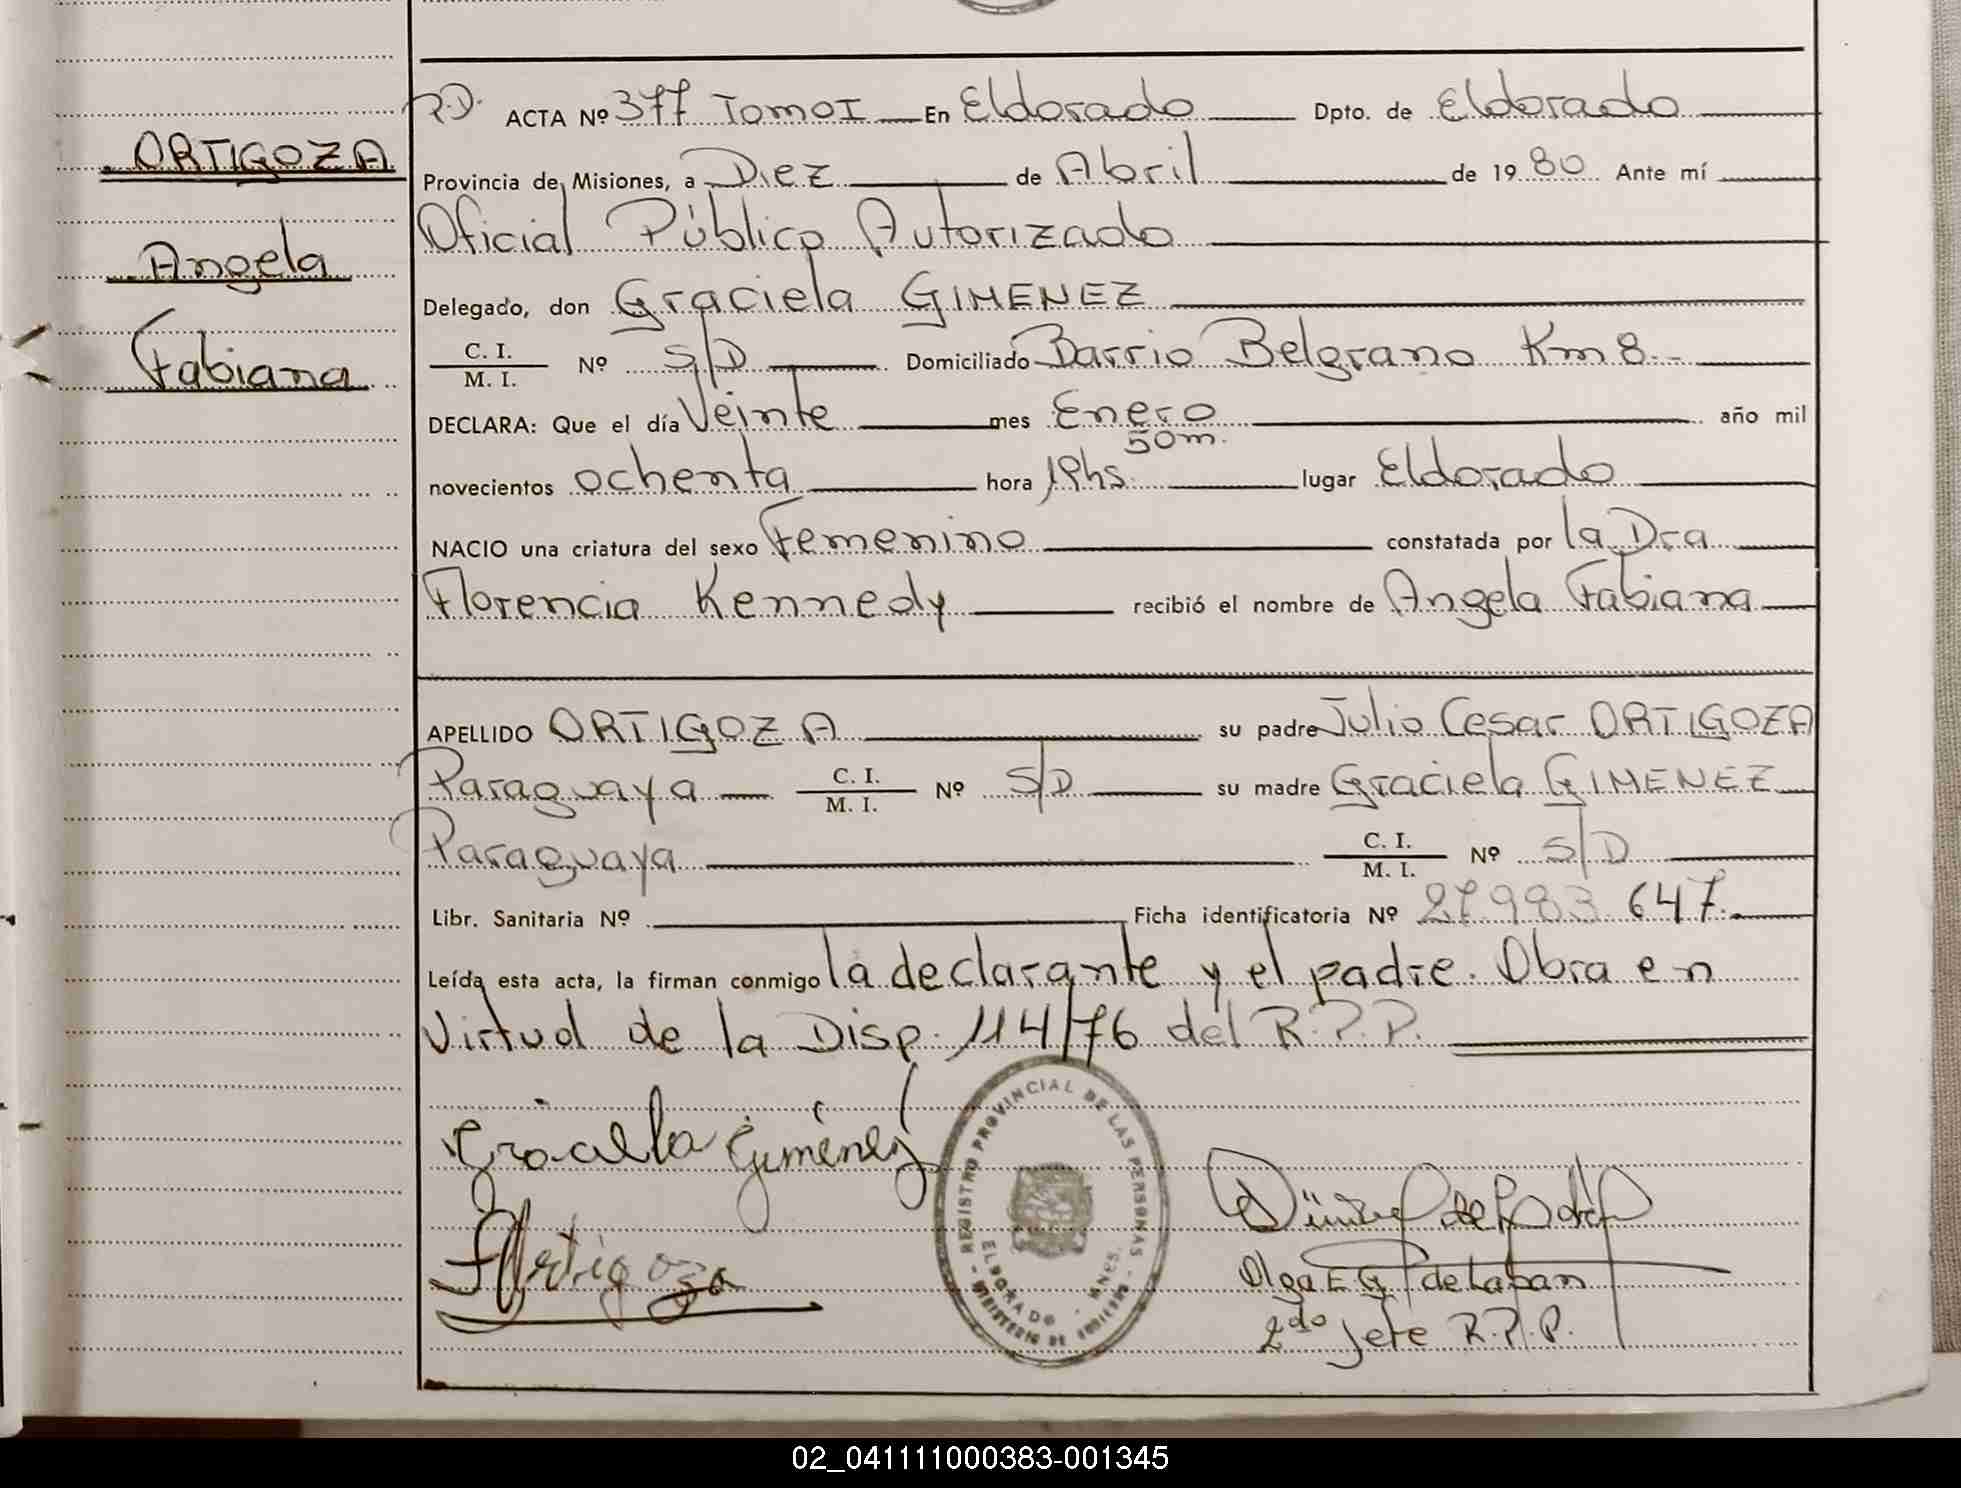 ORTIGOZA
Angela
Fabiana
R.D. ACTA Nº 377 Tomo I En Eldorado Dpto. de Eldorado
Provincia de Misiones, a Diez de Abril de 1980 Ante mí
Oficial Público Autorizado
Delegado, don Graciela GIMENEZ
C. I. / M. I. Nº S/D Domiciliado Barrio Belgrano Km 8.-
DECLARA: Que el día Veinte mes Enero año mil
novecientos ochenta hora hs 50m. lugar Eldorado
NACIO una criatura del sexo Femenino constatada por la Dra
Florencia Kennedy recibió el nombre de Angela Fabiana
APELLIDO ORTIGOZA su padre Julio Cesar ORTIGOZA
Paraguaya C. I. / M. I. Nº S/D su madre Graciela GIMENEZ
Paraguaya C. I. / M. I. Nº S/D
Libr. Sanitaria Nº Ficha identificatoria Nº 27983 647.
Leída esta acta, la firman conmigo la declarante y el padre. Obra en
Virtud de la Disp. 114/76 del R.P.P.
Graciela Gimenez
Ortigoza
REGISTRO PROVINCIAL DE LAS PERSONAS
ELDORADO - MNES.
MINISTERIO DE
Olga E G de Laban
2do Jefe R.P.P.
02_041111000383-001345